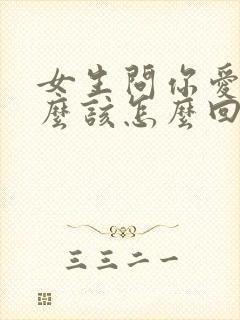 女生問你愛
麼該怎麼回
三三二一